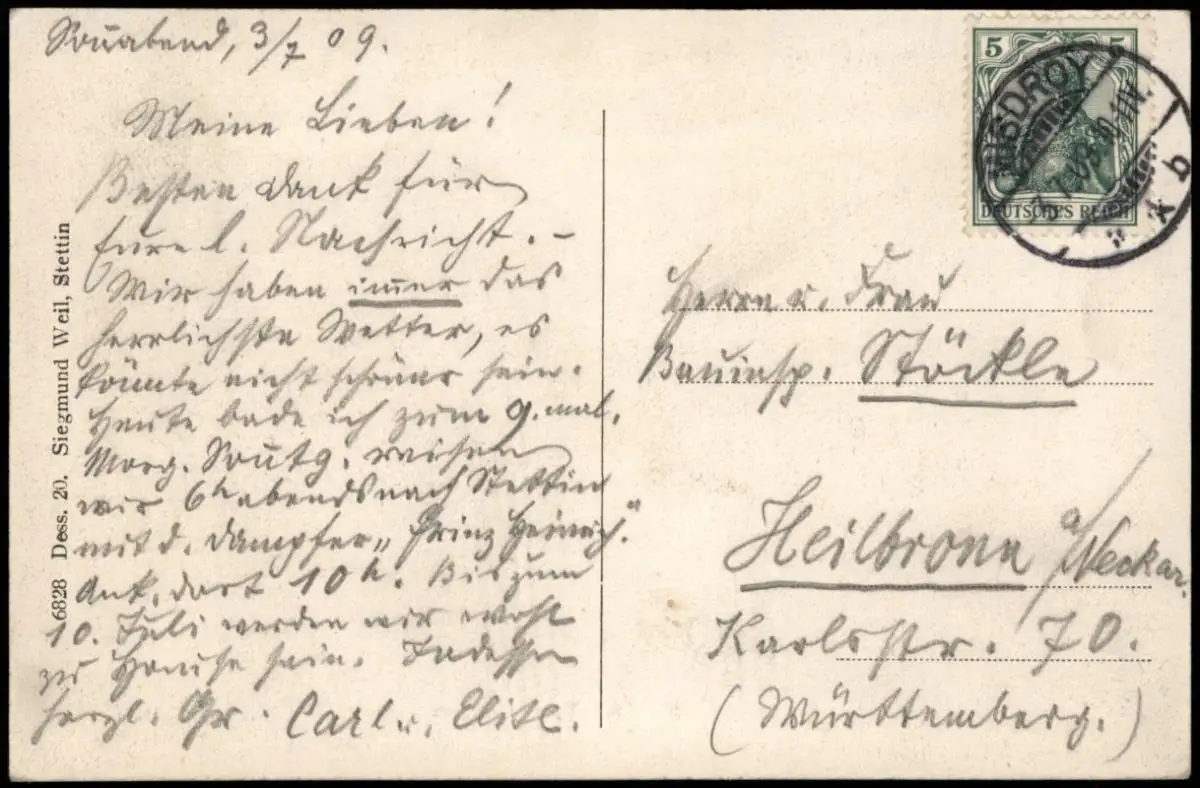 Sonnabend, 3/7 09.
Meine Lieben!
Besten Dank für
Eure l. Nachricht. –
Wir haben immer das
herrlichste Wetter, es
könnte nicht schöner sein.
Heute bade ich zum 9. mal.
Morg. Sontg. reisen
wir 6h abends nach Stettin
mit d. Dampfer „Prinz Heinrich."
Ank. dort 10h. Bis zum
10. Juli werden wir wohl
zu Hause sein. Indessen
herzl. Gr. Carl u. Elise.
6828 Dess. 20. Siegmund Weil, Stettin
5 5
DEUTSCHES REICH
MISDROY
* b
Herrn u. Frau
Bauinsp. Stöckle
Heilbronn a/Neckar.
Karlsstr. 70.
(Württemberg.)